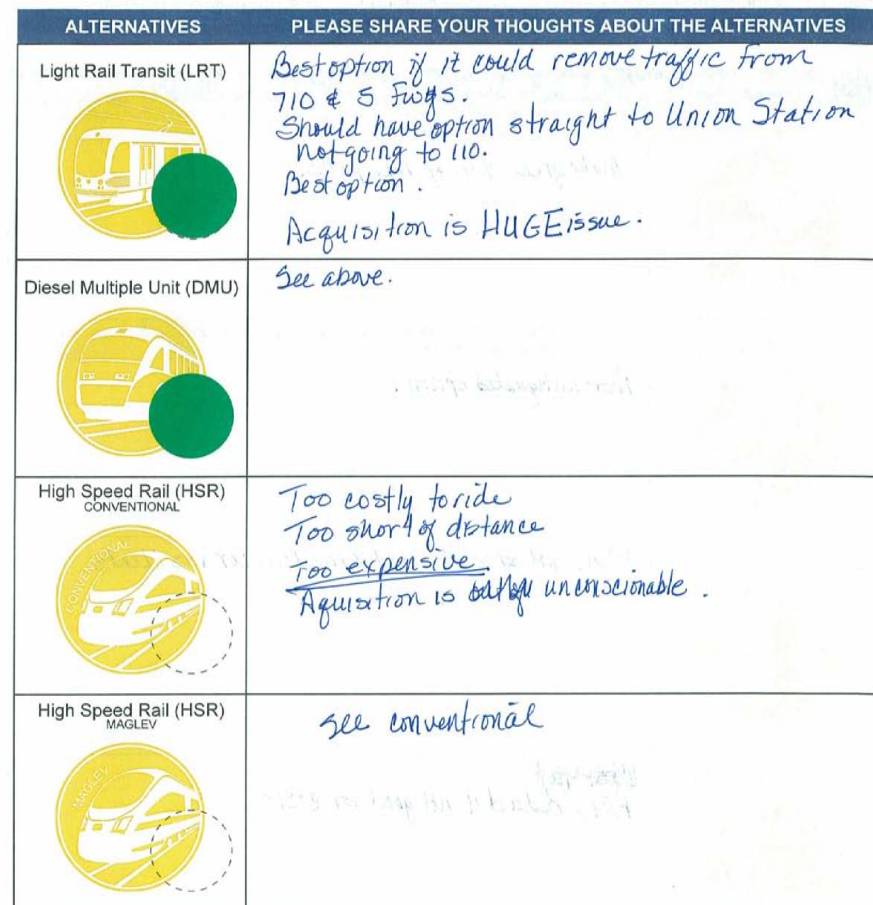 ALTERNATIVES
PLEASE SHARE YOUR THOUGHTS ABOUT THE ALTERNATIVES
Light Rail Transit (LRT)
Best option if it could remove traffic from
710 & 5 Fwys.
Should have option straight to Union Station
not going to 110.
Best option.
Acquisition is HUGE issue.
Diesel Multiple Unit (DMU)
See above.
High Speed Rail (HSR)
CONVENTIONAL
CONVENTIONAL
Too costly to ride
Too short of distance
Too expensive.
Aquisition is unconscionable.
High Speed Rail (HSR)
MAGLEV
MAGLEV
See conventional